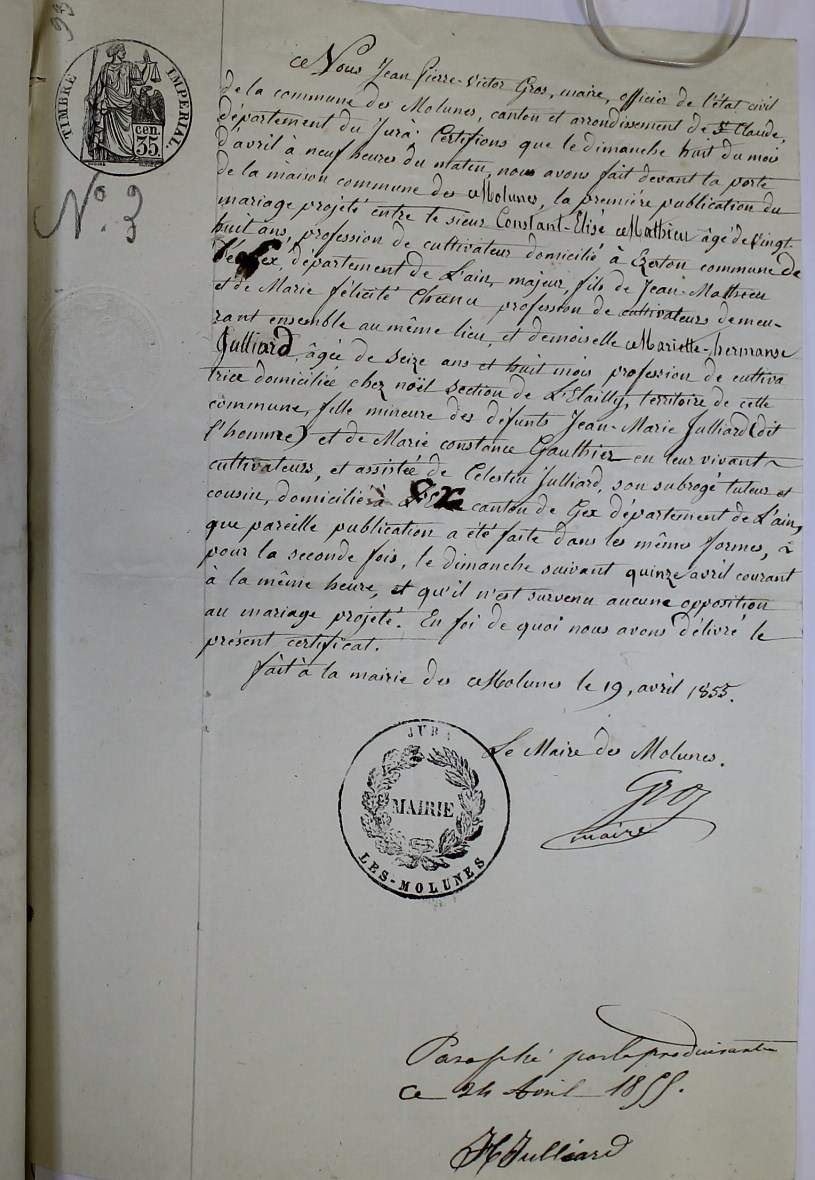 93
TIMBRE IMPERIAL
cen.
35
N.º 3
Nous Jean Pierre-Victor Gros, maire, officier de l'état civil
de la commune des Molunes, canton et arrondissement de St Claude,
département du Jura. Certifions que le dimanche huit du mois
d'avril à neuf heures du matin, nous avons fait devant la porte
de la maison commune des Molunes, la première publication du
mariage projeté entre le sieur Constant-Elisé Mathieu âgé de vingt-
huit ans, profession de cultivateur domicilié à commune de
Gex, département de L'ain, majeur, fils de Jean-Mathieu
et de Marie félicité profession de cultivateurs demeu-
rant ensemble au même lieu, et demoiselle Mariette-hermanse
Julliard, âgée de seize ans et huit mois, profession de cultiva
trice domiciliée chez noël section de L'Etailly, territoire de cette
commune, fille mineure des défunts Jean-Marie Julliard (dit
l'homme) et de Marie constance Gauthier en leur vivant
cultivateurs, et assistée de Celestin Julliard, son subrogé tuteur et
cousin, domicilié à canton de Gex département de L'ain,
que pareille publication a été faite dans les mêmes formes, &
pour la seconde fois, le dimanche suivant quinze avril courant
à la même heure, et qu'il n'est survenu aucune opposition
au mariage projeté. En foi de quoi nous avons délivré le
présent certificat.
fait à la mairie des Molunes le 19, avril 1855.
Le Maire des Molunes.
Gros
maire
JURA
MAIRIE
LES-MOLUNES
Paraphé par la produisante
ce 24 Avril 1855.
H Julliard